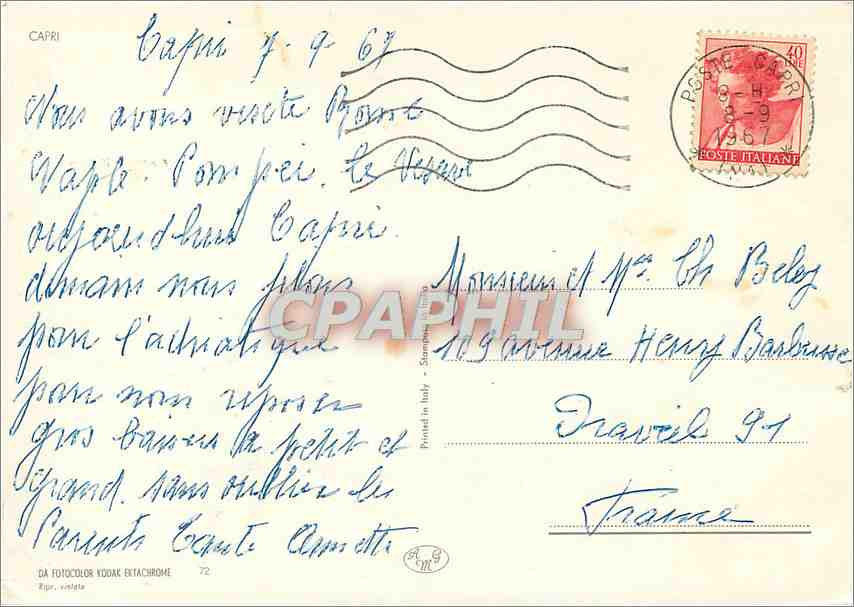 CAPRI
Capri 7-9-67
Nous avons visité Rome
Naple. Pompei. le Vesuve
aujourd'hui Capri.
demain nous filons
pour l'adriatique
pour nous reposer
gros baisers a petit et
grand. sans oublier les
Parents Tante Annette
40
LIRE
POSTE ITALIANE
POSTE CAPRI
8-H
8-9
1967
Monsieur et Mme Ch Beley
109 avenue Henry Barbusse
Draveil 91
France
Printed in Italy - Stampato in Italia
CPAPHIL
DA FOTOCOLOR KODAK EKTACHROME 72
Ripr. vietata